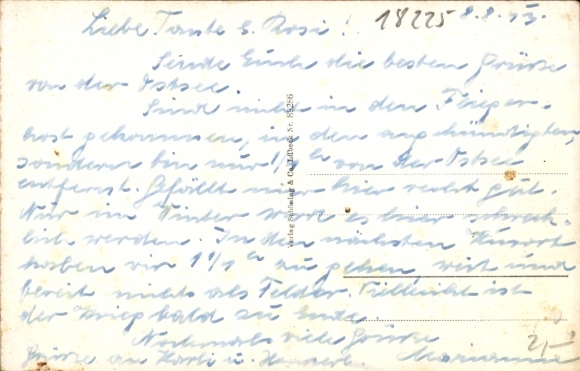 Liebe Tante u. Rosi! 18225 8.8.43.
Sende Euch die besten Grüße
von der Ostsee.
Sind nicht in den Flieger-
horst gekommen, in den angekündigten,
sondern bin nur 1/2 von der Ostsee
entfernt. Gefällt mir hier recht gut.
Nur im Winter wird es hier schreck-
lich werden. In den nächsten Kurort
haben wir 1 1/2 zu gehen, weit und
breit nichts als Felder. Vielleicht ist
der Krieg bald zu Ende.
Nochmals viele Grüße
Grüße an Karli u. Marianne
2,-
Verlag Schöning & Co., Lübeck Nr.